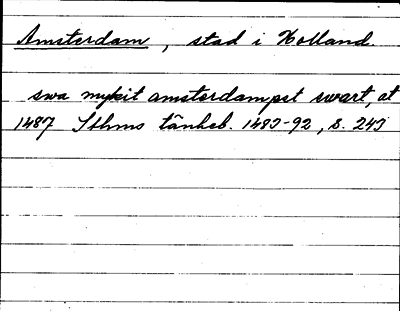 Amsterdam, stad i Holland
swa mykit amsterdampst swart, at
1487 Sthms tänkeb. 1483-92, s. 243